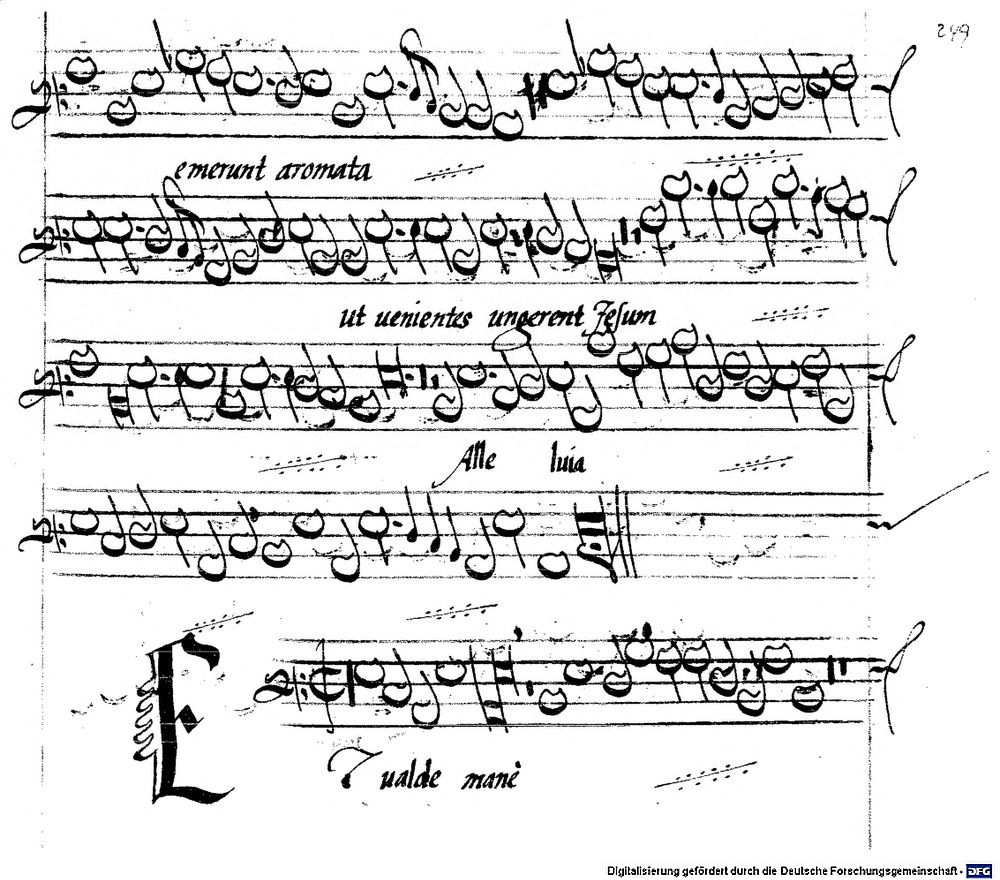 249
emerunt aromata
ut uenientes ungerent Jesum
Alle luia
E
T ualde manè
Digitalisierung gefördert durch die Deutsche Forschungsgemeinschaft - DFG